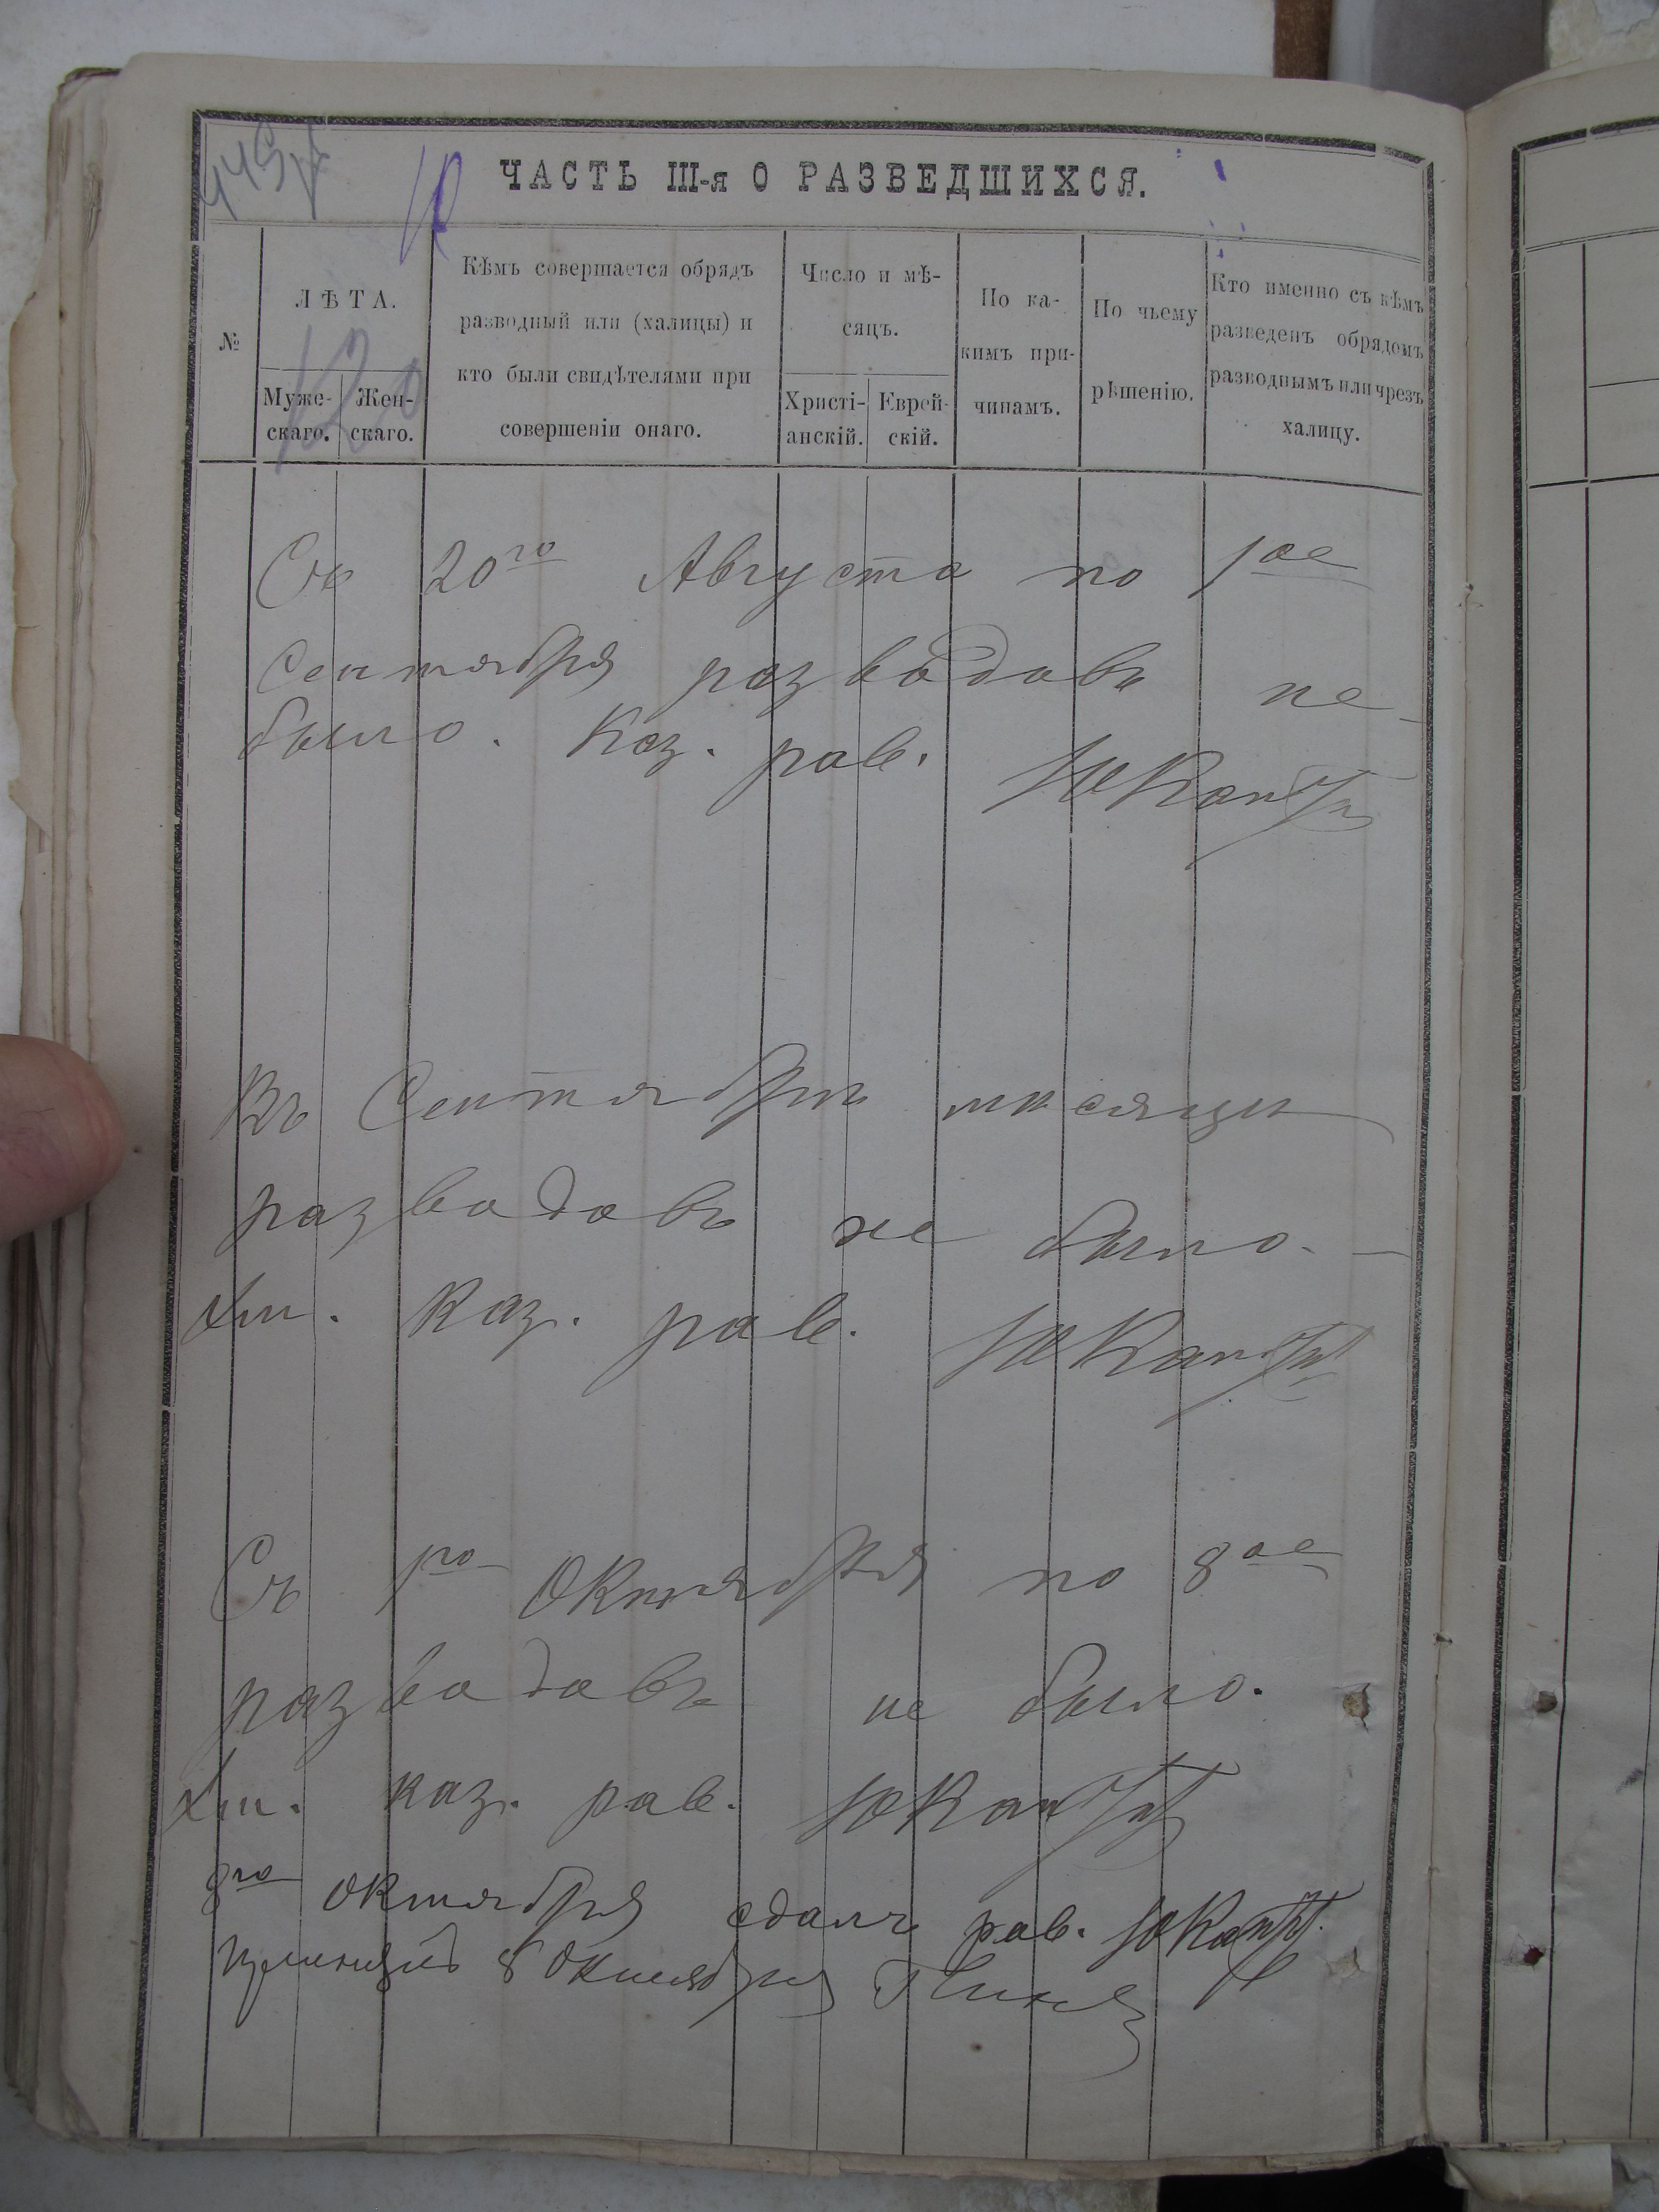 ЧАСТЬ III-я О РАЗВЕДШИХСЯ.
№
ЛѢТА.
Муже-
скаго.
Жен-
скаго.
Кѣмъ совершается обрядъ
разводный или (халицы) и
кто были свидѣтелями при
совершеніи онаго.
Число и мѣ-
сяцъ.
Христі-
анскій.
Еврей-
скій.
По ка-
кимъ при-
чинамъ.
По чьему
рѣшенію.
Кто именно съ кѣмъ
разведенъ обрядомъ
разводнымъ или чрезъ
халицу.
Съ 20го Августа по 1ое
Сентября разводовъ не
было. Каз. рав. ЮКан
Въ Сентябрѣ мѣсяцѣ
разводовъ не было. –
Каз. рав. ЮКан
Съ 1го Октября по 8ое
разводовъ не было.
каз. рав. ЮКан
8го Октября сдалъ рав. ЮКан
8 Октября